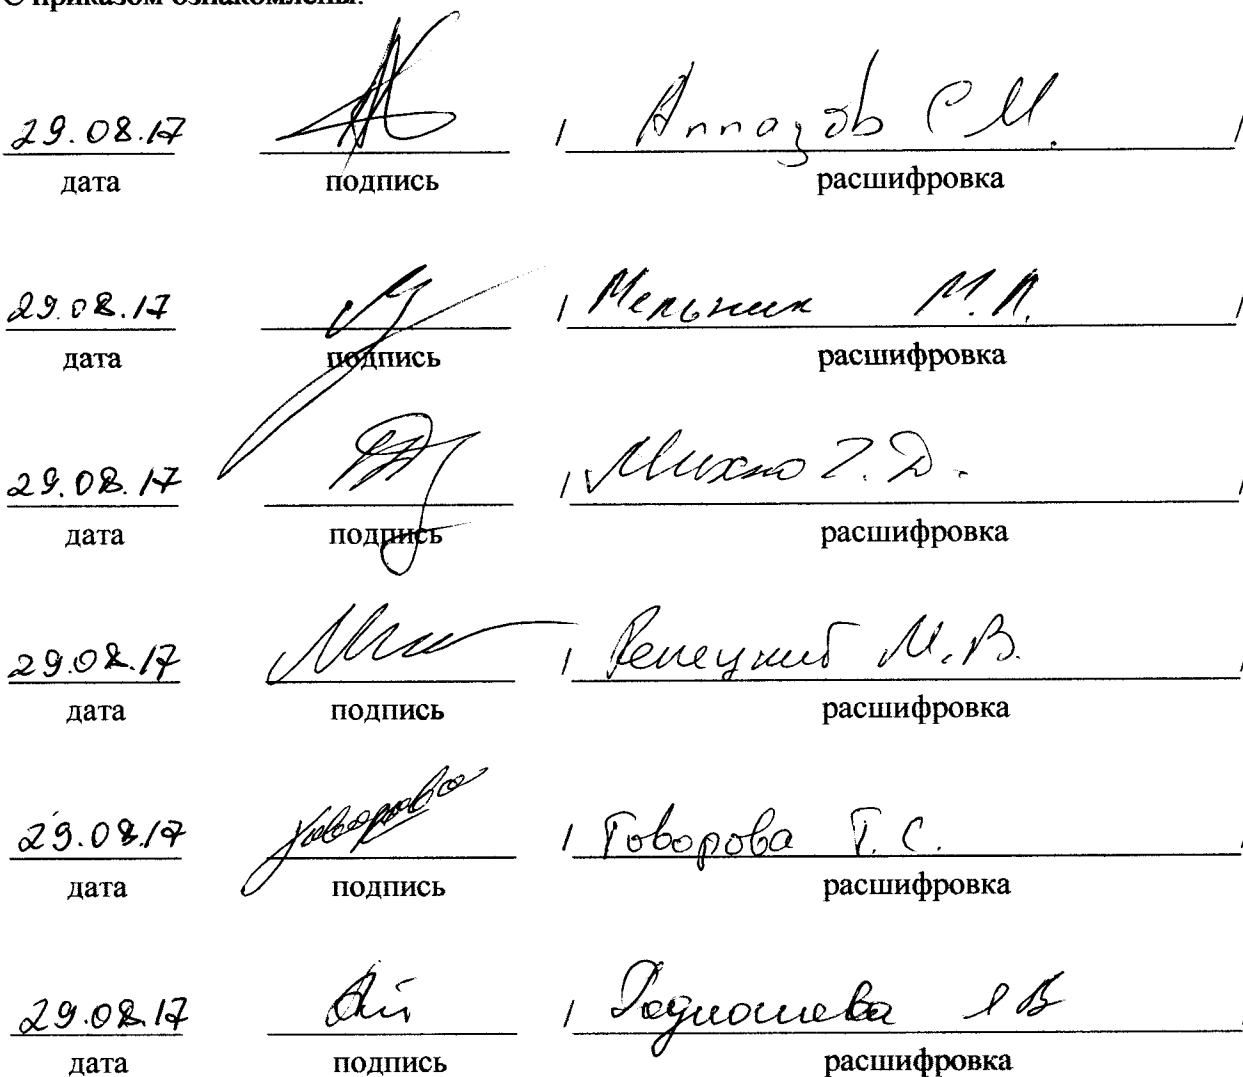 С приказом ознакомлены:
29.08.17 / Аппазов С М. /
дата подпись расшифровка
29.08.17 / Мельник М.П. /
дата подпись расшифровка
29.08.17 / Михно Г.Д. /
дата подпись расшифровка
29.08.17 / Репецкий М.В. /
дата подпись расшифровка
29.08.17 Говорова / Говорова Т.С. /
дата подпись расшифровка
29.08.17 / Я В /
дата подпись расшифровка